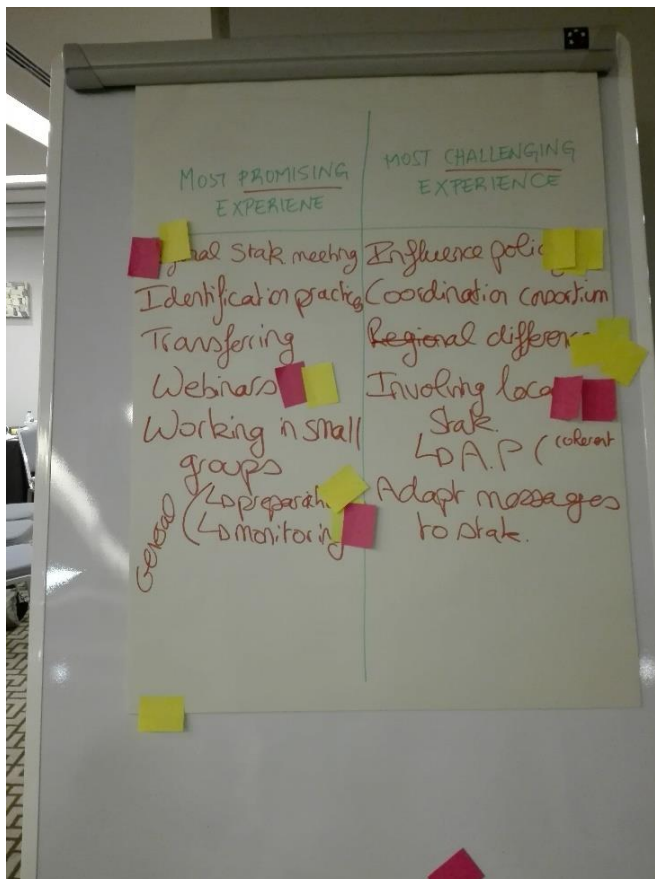 MOST PROMISING
EXPERIENE
Stak meeting
Identification practices
Transferring
Webinars
Working in small
groups
General
↳ preparati
↳ monitoring
MOST CHALLENGING
EXPERIENCE
Influence polic
Coordination consortium
Regional differen
Involving loca
Stak.
↳ A.P (coherent
Adapt messages
to stak.